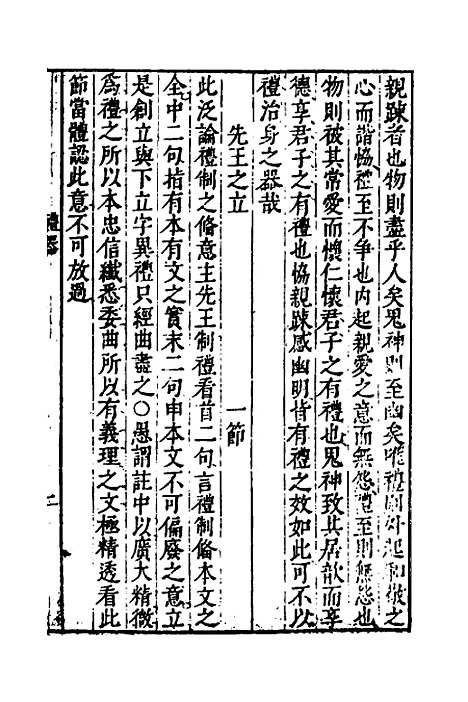 親踈者也物則盡乎人矣鬼神則至幽矣唯禮則外起和敬之
心而諧恊禮至不爭也内起親愛之意而無怨禮至則無怨也
物則被其常愛而懷仁懷君子之有禮也鬼神致其居歆而享
德享君子之有禮也恊親踈感幽明皆有禮之效如此可不以
禮治身之器哉
先王之立　一節
此泛論禮制之俻意主先王制禮看首二句言禮制俻本文之
全中二句指有本有文之實末二句申本文不可偏廢之意立
是創立與下立字異禮只經曲盡之○愚謂註中以廣大精微
爲禮之所以本忠信纎悉委曲所以有義理之文極精透看此
節當體認此意不可放過
禮器
二